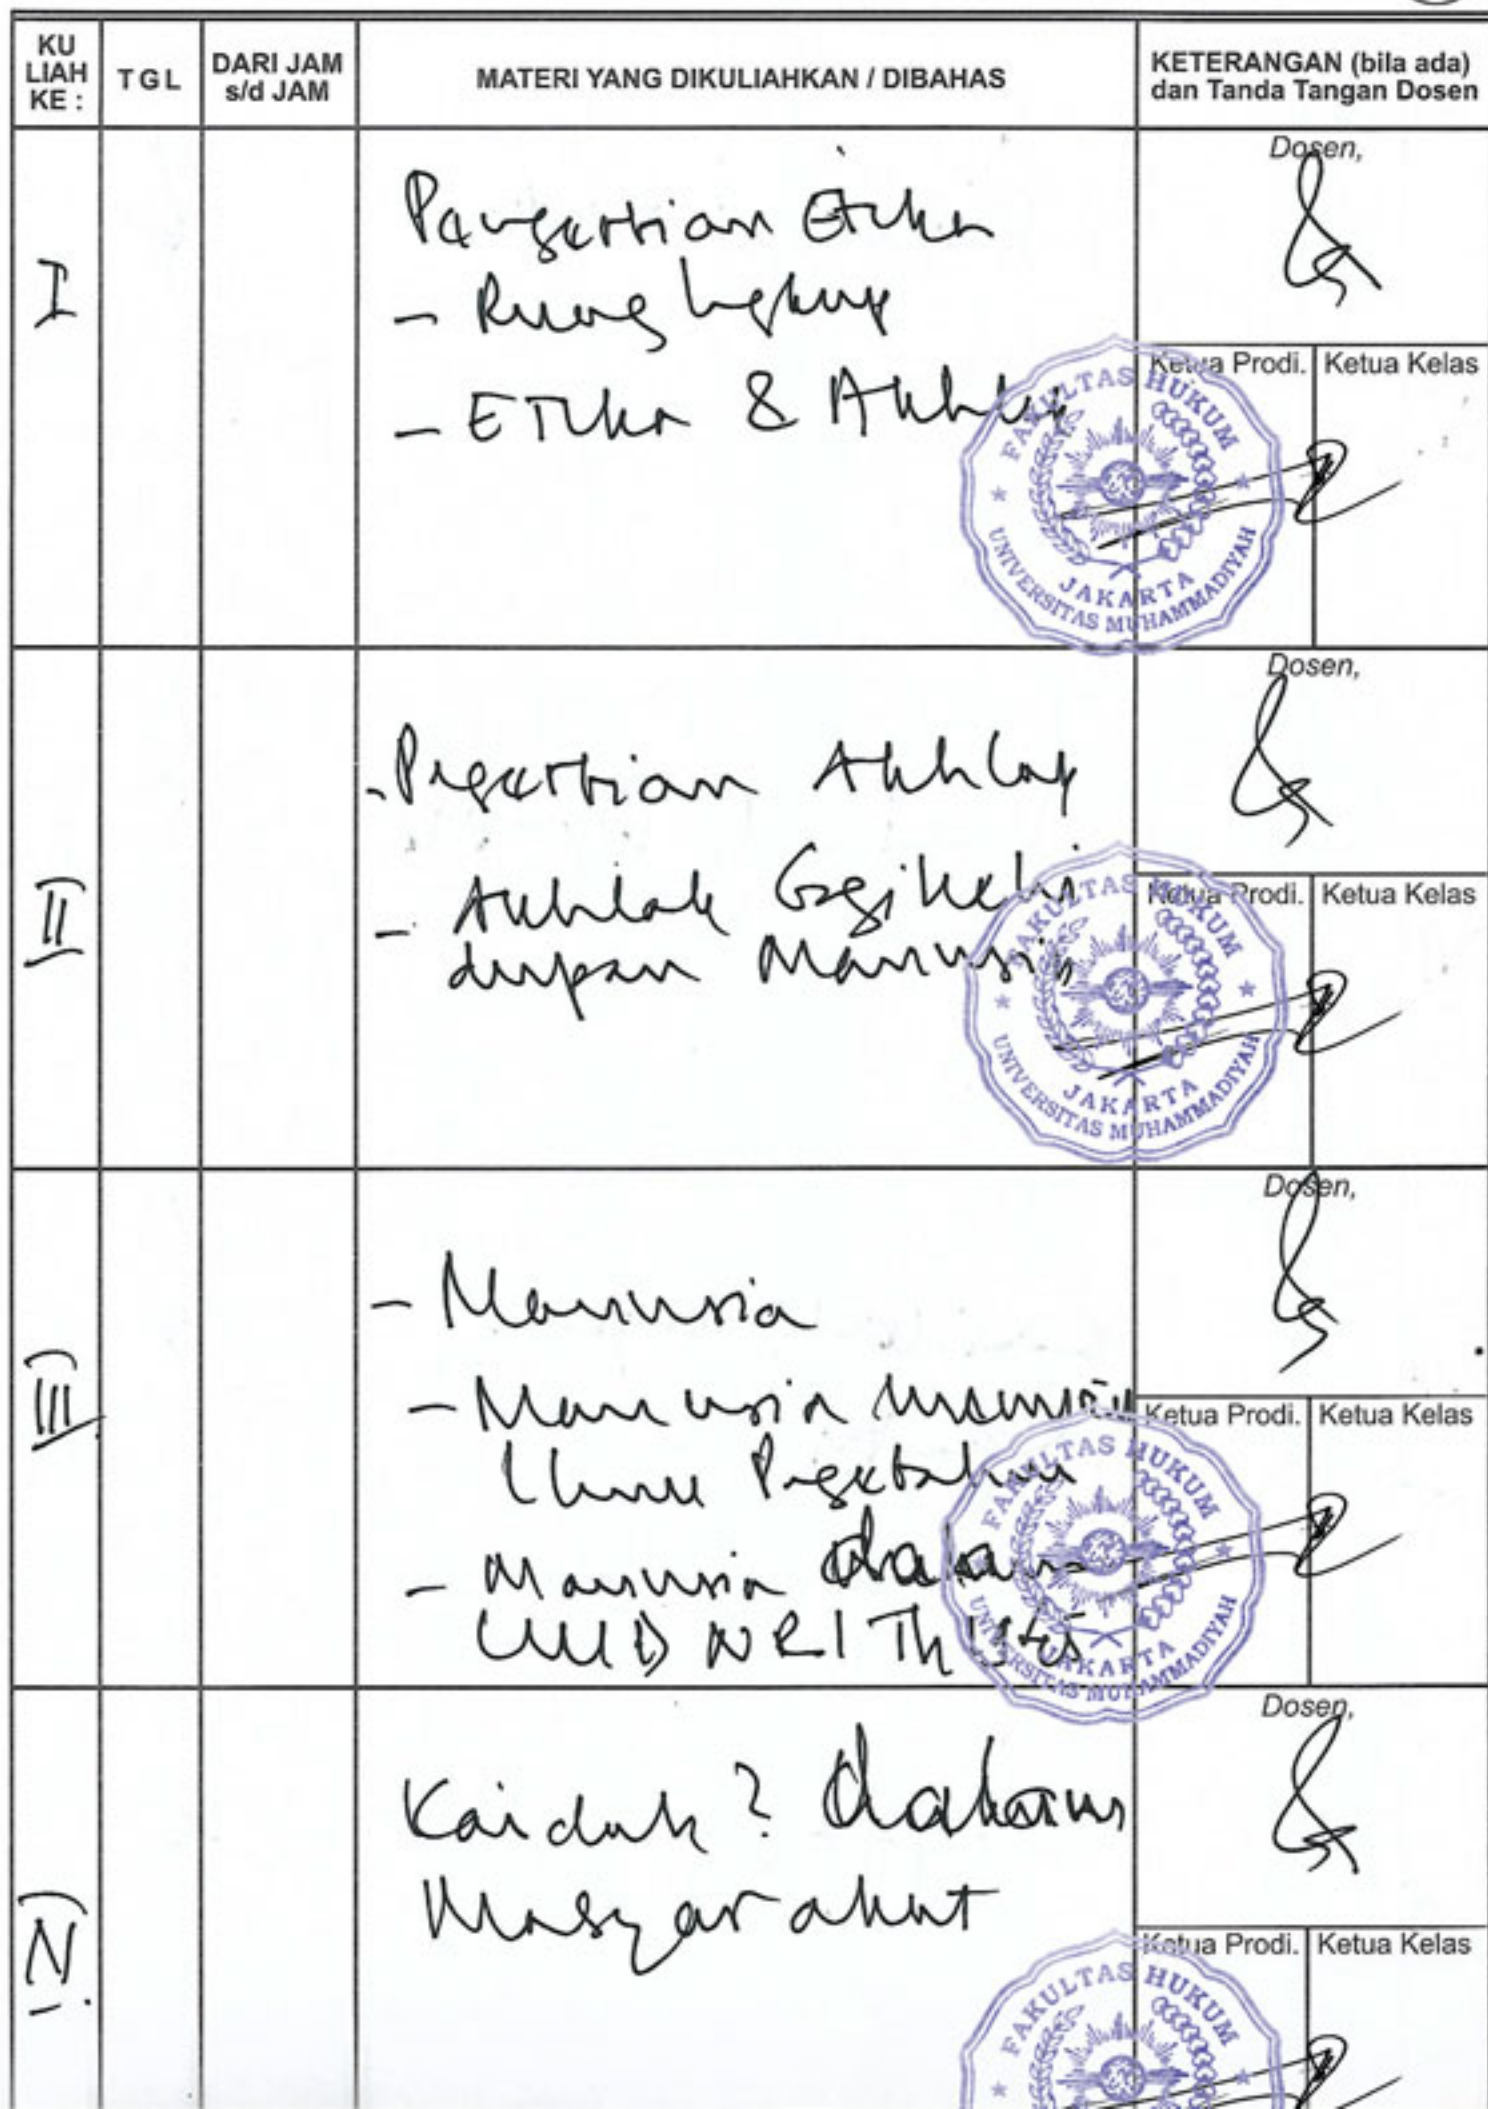 KU LIAH KE :
TGL
DARI JAM s/d JAM
MATERI YANG DIKULIAHKAN / DIBAHAS
KETERANGAN (bila ada) dan Tanda Tangan Dosen
I
Pengertian Etika
- Ruang lingkup
- Etika & Akhlak
Dosen,
Ketua Prodi.
Ketua Kelas
FAKULTAS HUKUM
UNIVERSITAS MUHAMMADIYAH
JAKARTA
II
- Pegertian Akhlak
- Akhlak bagi kehi
dupan Manusia
Dosen,
Ketua Prodi.
Ketua Kelas
FAKULTAS HUKUM
UNIVERSITAS MUHAMMADIYAH
JAKARTA
III
- Manusia
- Manusia
Ilmu
- Manusia dalam
UUD NRI Th 1945
Dosen,
Ketua Prodi.
Ketua Kelas
FAKULTAS HUKUM
UNIVERSITAS MUHAMMADIYAH
JAKARTA
IV
Kaidah ? dalam
Masyarakat
Dosen,
Ketua Prodi.
Ketua Kelas
FAKULTAS HUKUM